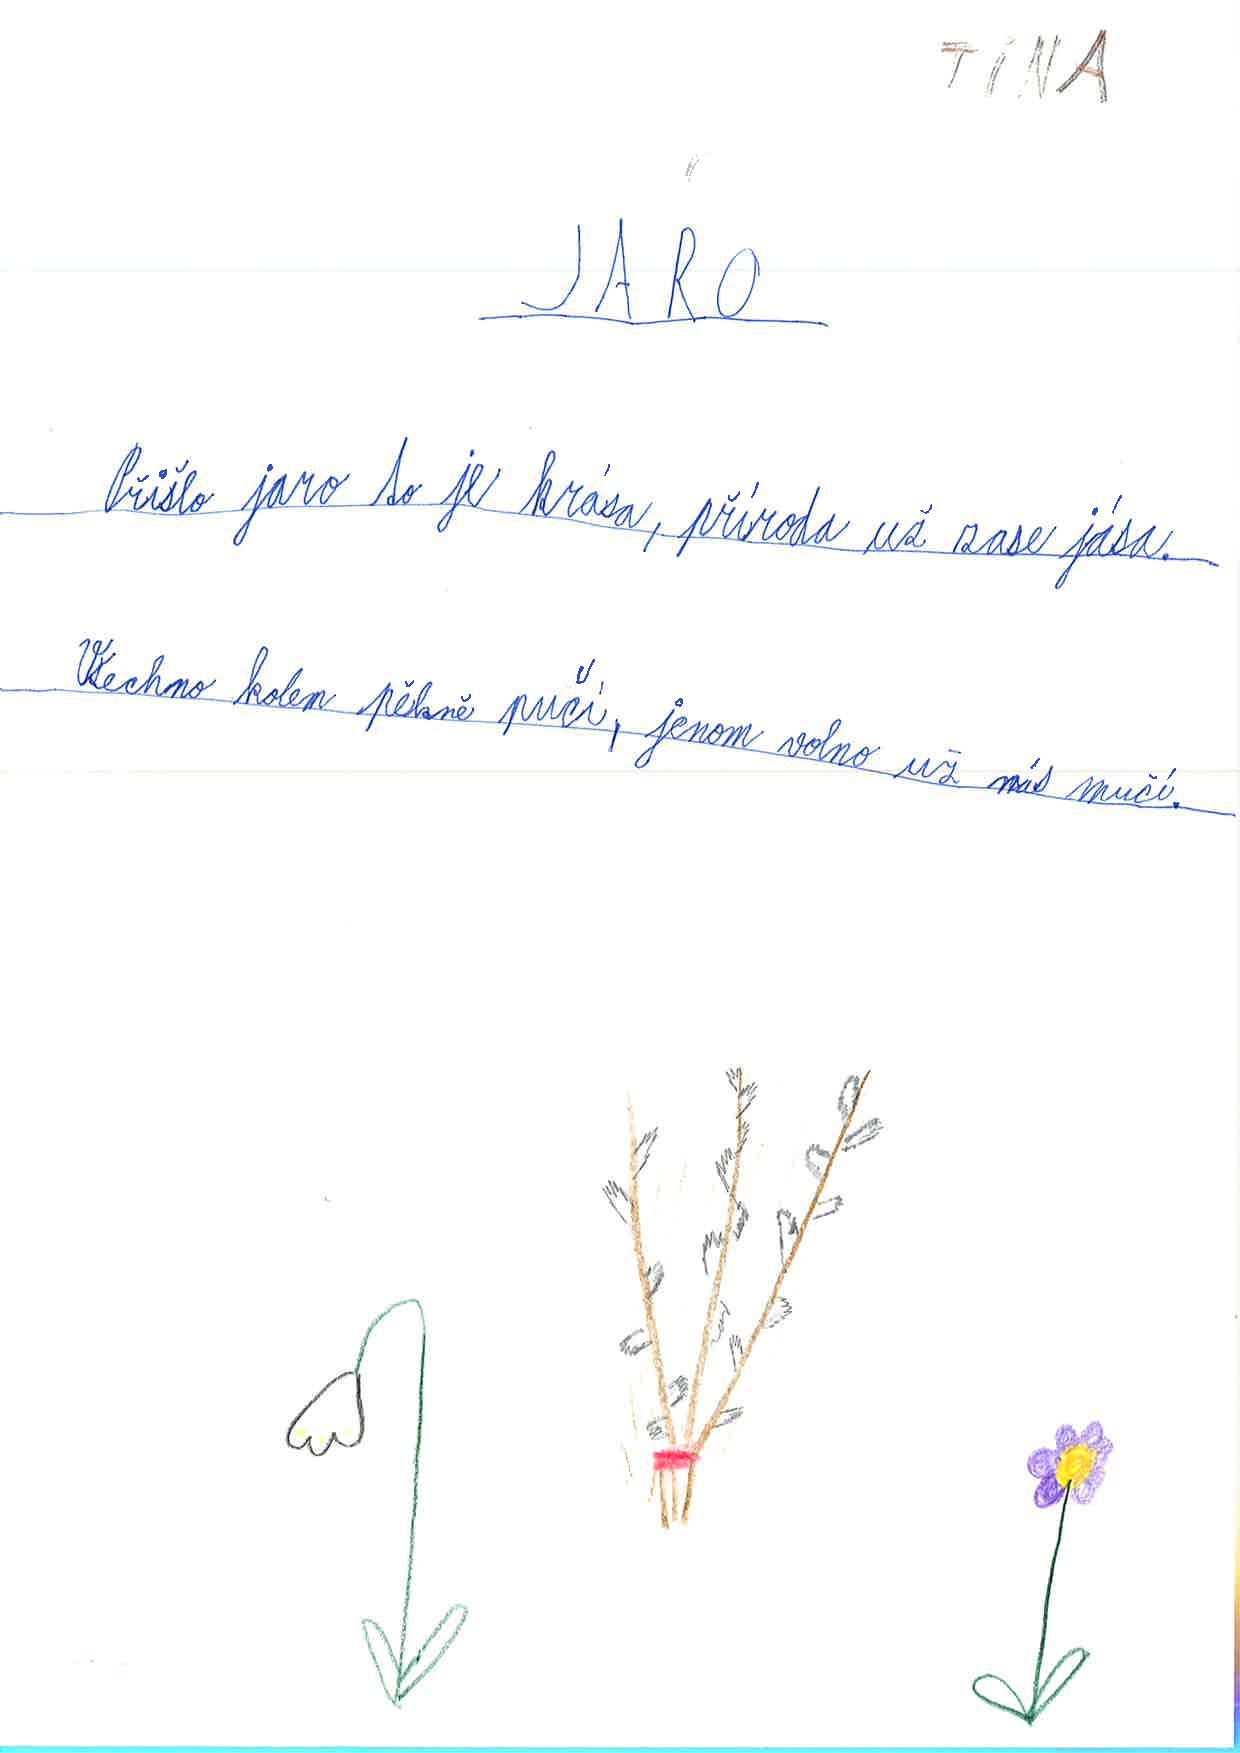 TINA
JARO
Přišlo jaro to je krása, příroda už zase jása.
Všechno kolem pěkně pučí, jenom volno už nás mučí.